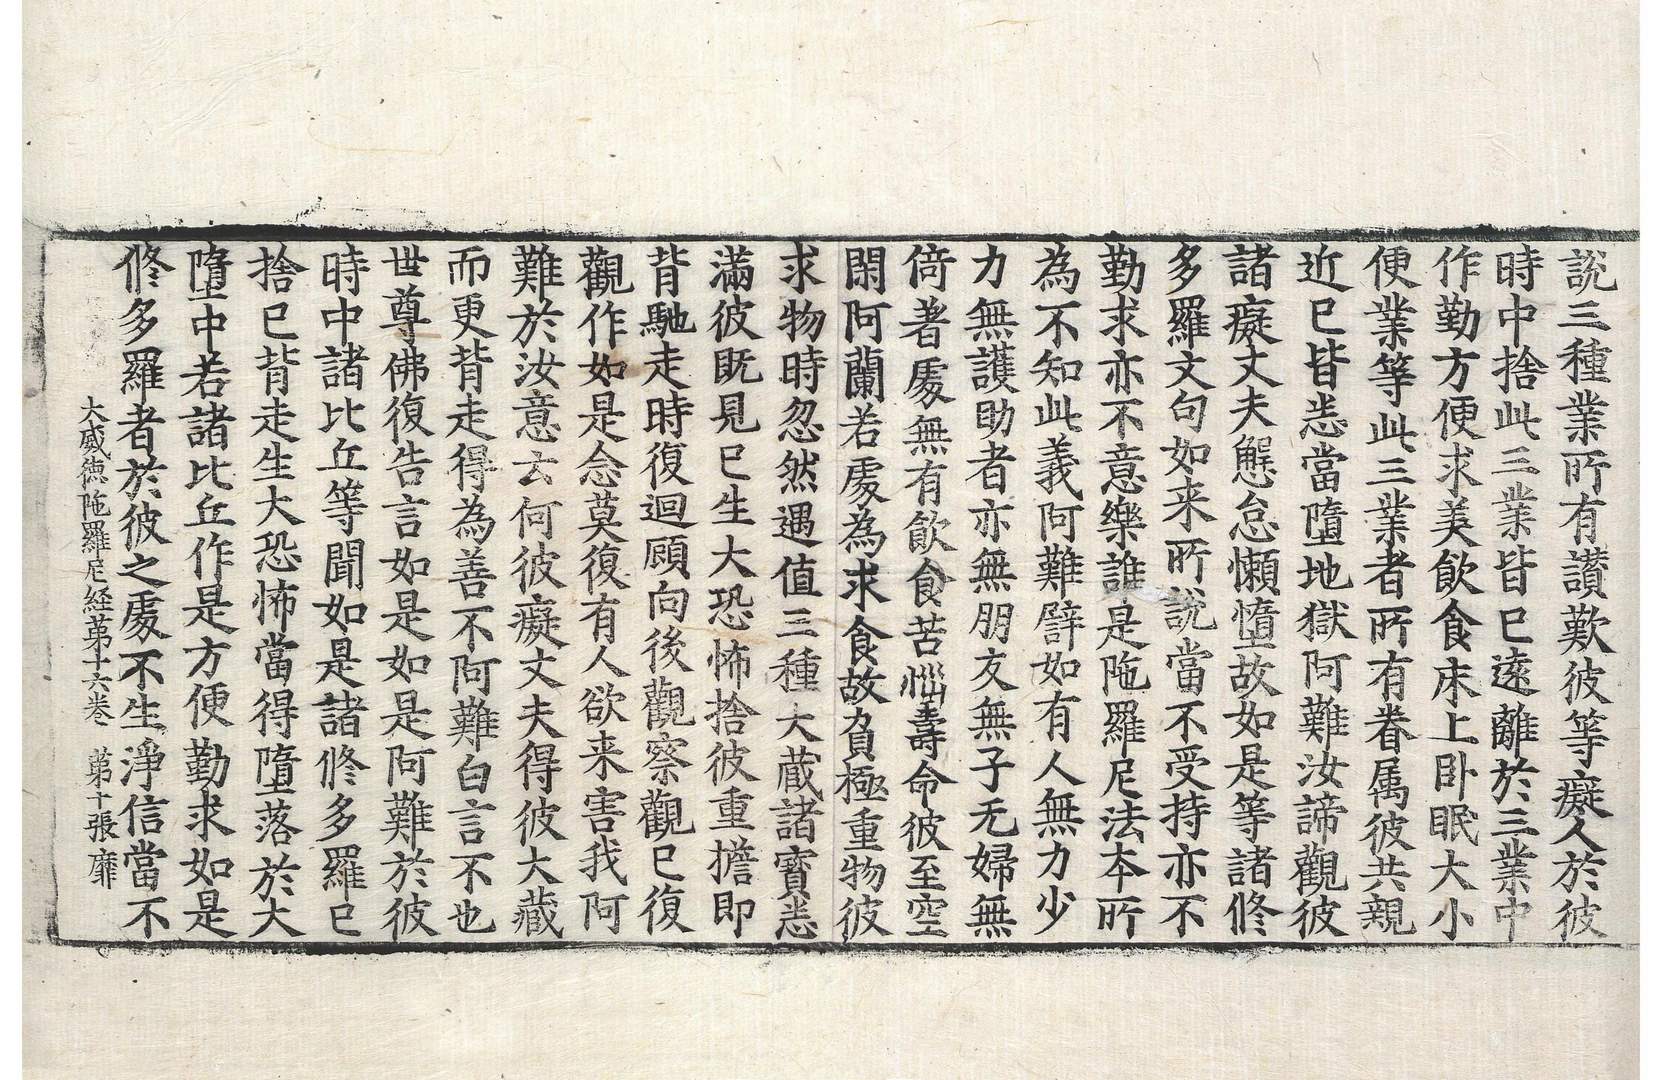 説三種業所有讃歎彼等癡人於彼
時中捨此三業皆已遠離於三業中
作勤方便求美飲食床上卧眠大小
便業等此三業者所有眷属彼共親
近已皆悉當墮地獄阿難汝諦觀彼
諸癡丈夫懈怠懶惰故如是等諸修
多羅文句如来所説當不受持亦不
勤求亦不意樂誰是陁羅尼法本所
為不知此義阿難譬如有人無力少
力無護助者亦無朋友無子无婦無
倚著處無有飲食苦惱壽命彼至空
閑阿蘭若處為求食故負極重物彼
求物時忽然遇值三種大蔵諸寶悉
滿彼既見已生大恐怖捨彼重擔即
背馳走時復迴顧向後觀察觀已復
觀作如是念莫復有人欲来害我阿
難於汝意云何彼癡丈夫得彼大藏
而更背走得為善不阿難白言不也
世尊佛復告言如是如是阿難於彼
時中諸比丘等聞如是諸修多羅已
捨已背走生大恐怖當得墮落於大
墮中若諸比丘作是方便勤求如是
修多羅者於彼之處不生淨信當不
大威徳陁羅尼経苐十六巻 苐十張 靡